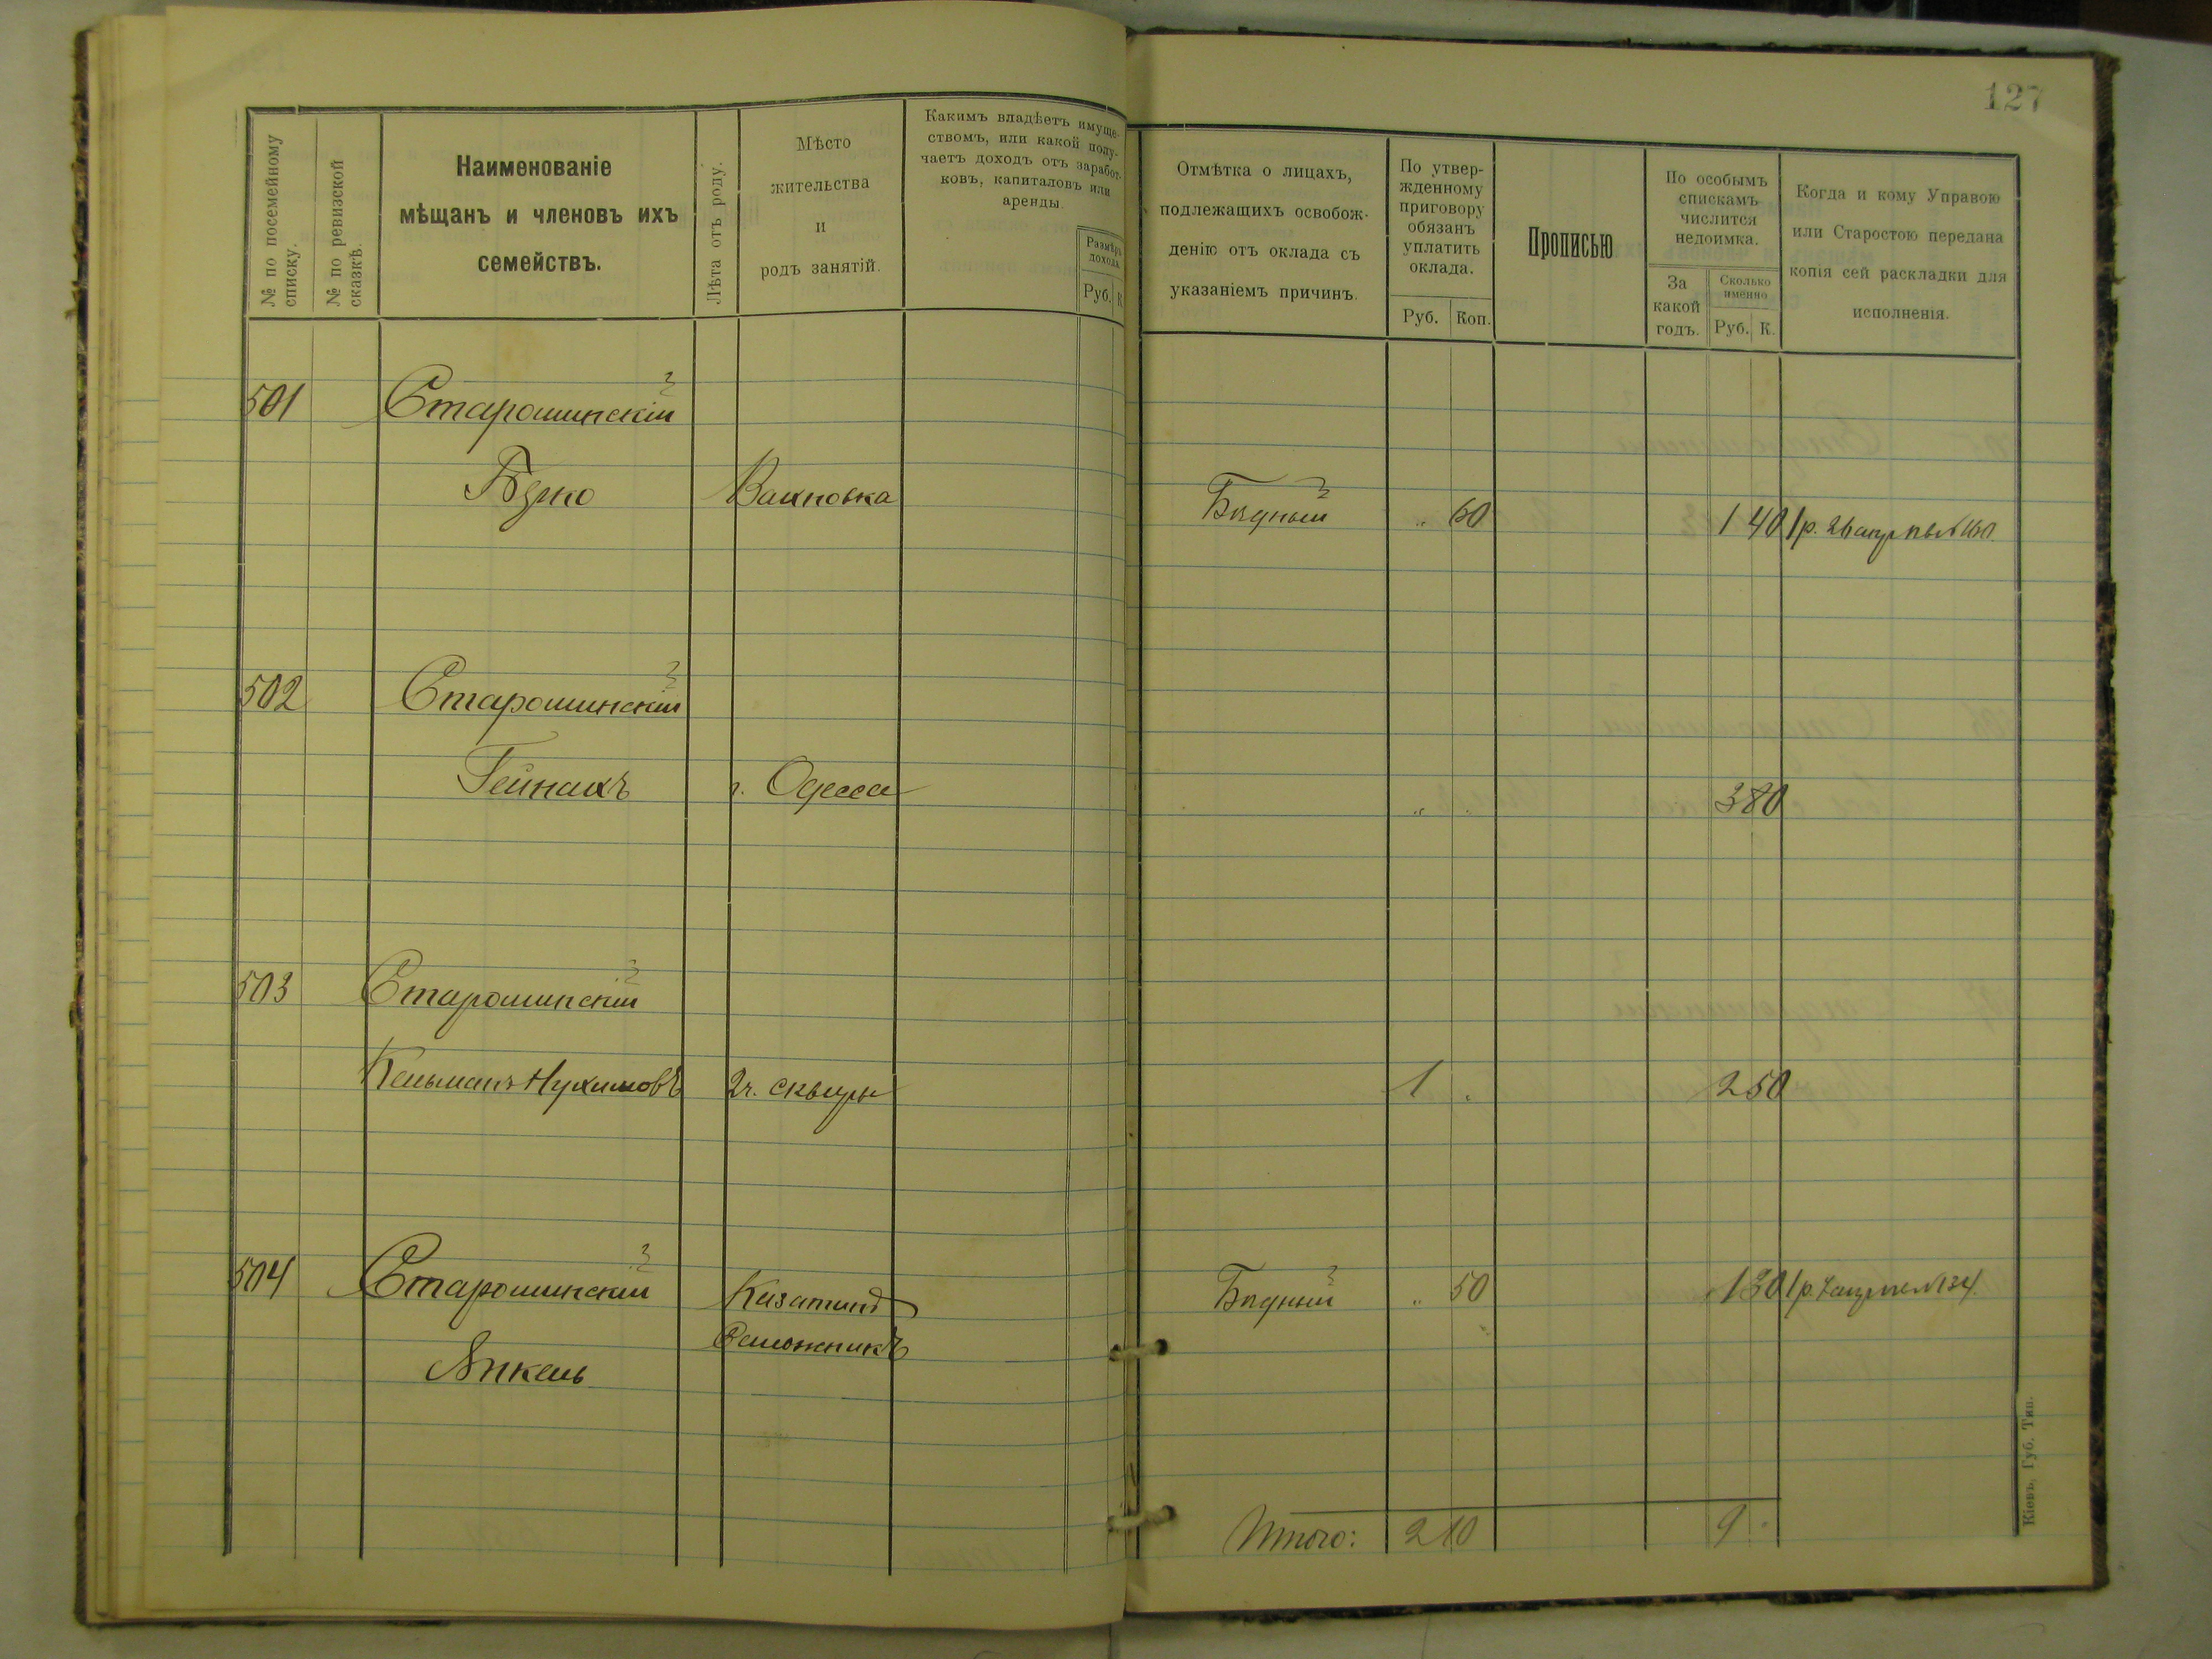 127
№ по посемейному
списку.
№ по ревизской
сказкѣ.
Наименованіе
мѣщанъ и членовъ ихъ
семействъ.
Лѣта отъ роду.
Мѣсто
жительства
и
родъ занятій.
Какимъ владѣетъ имуще-
ствомъ, или какой полу-
чаетъ доходъ отъ заработ-
ковъ, капиталовъ или
аренды.
Размѣръ
дохода.
Руб. К.
Отмѣтка о лицахъ,
подлежащихъ освобож-
денію отъ оклада съ
указаніемъ причинъ.
По утвер-
жденному
приговору
обязанъ
уплатить
оклада.
Руб. Коп.
Прописью
По особымъ
спискамъ
числится
недоимка.
За
какой
годъ.
Сколько
именно
Руб. К.
Когда и кому Управою
или Старостою передана
копія сей раскладки для
исполненія.
501 Старошинскій
Вахновка Бѣдный „ 60 1 40 1 р. 26
502 Старошинскій
Гейнахъ г. Одесса „ „ 3 80
503 Старошинскій
Кельманъ Нухимовъ 2 ч. Сквиры 1 „ 2 50
504 Старошинскій Казатинъ Бѣдный „ 50 1 30 1 р.
Сапожникъ
Янкель
Итого: 2 10 9 „
Кіевъ, Губ. Тип.